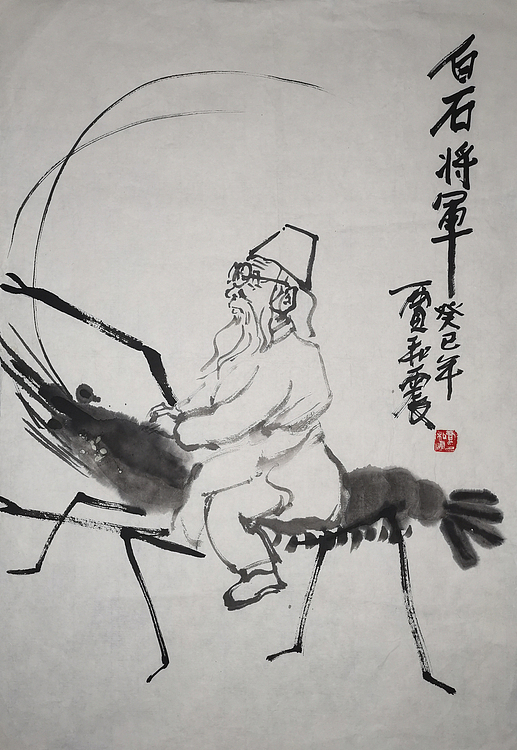 白石将軍
癸巳年
賈和震